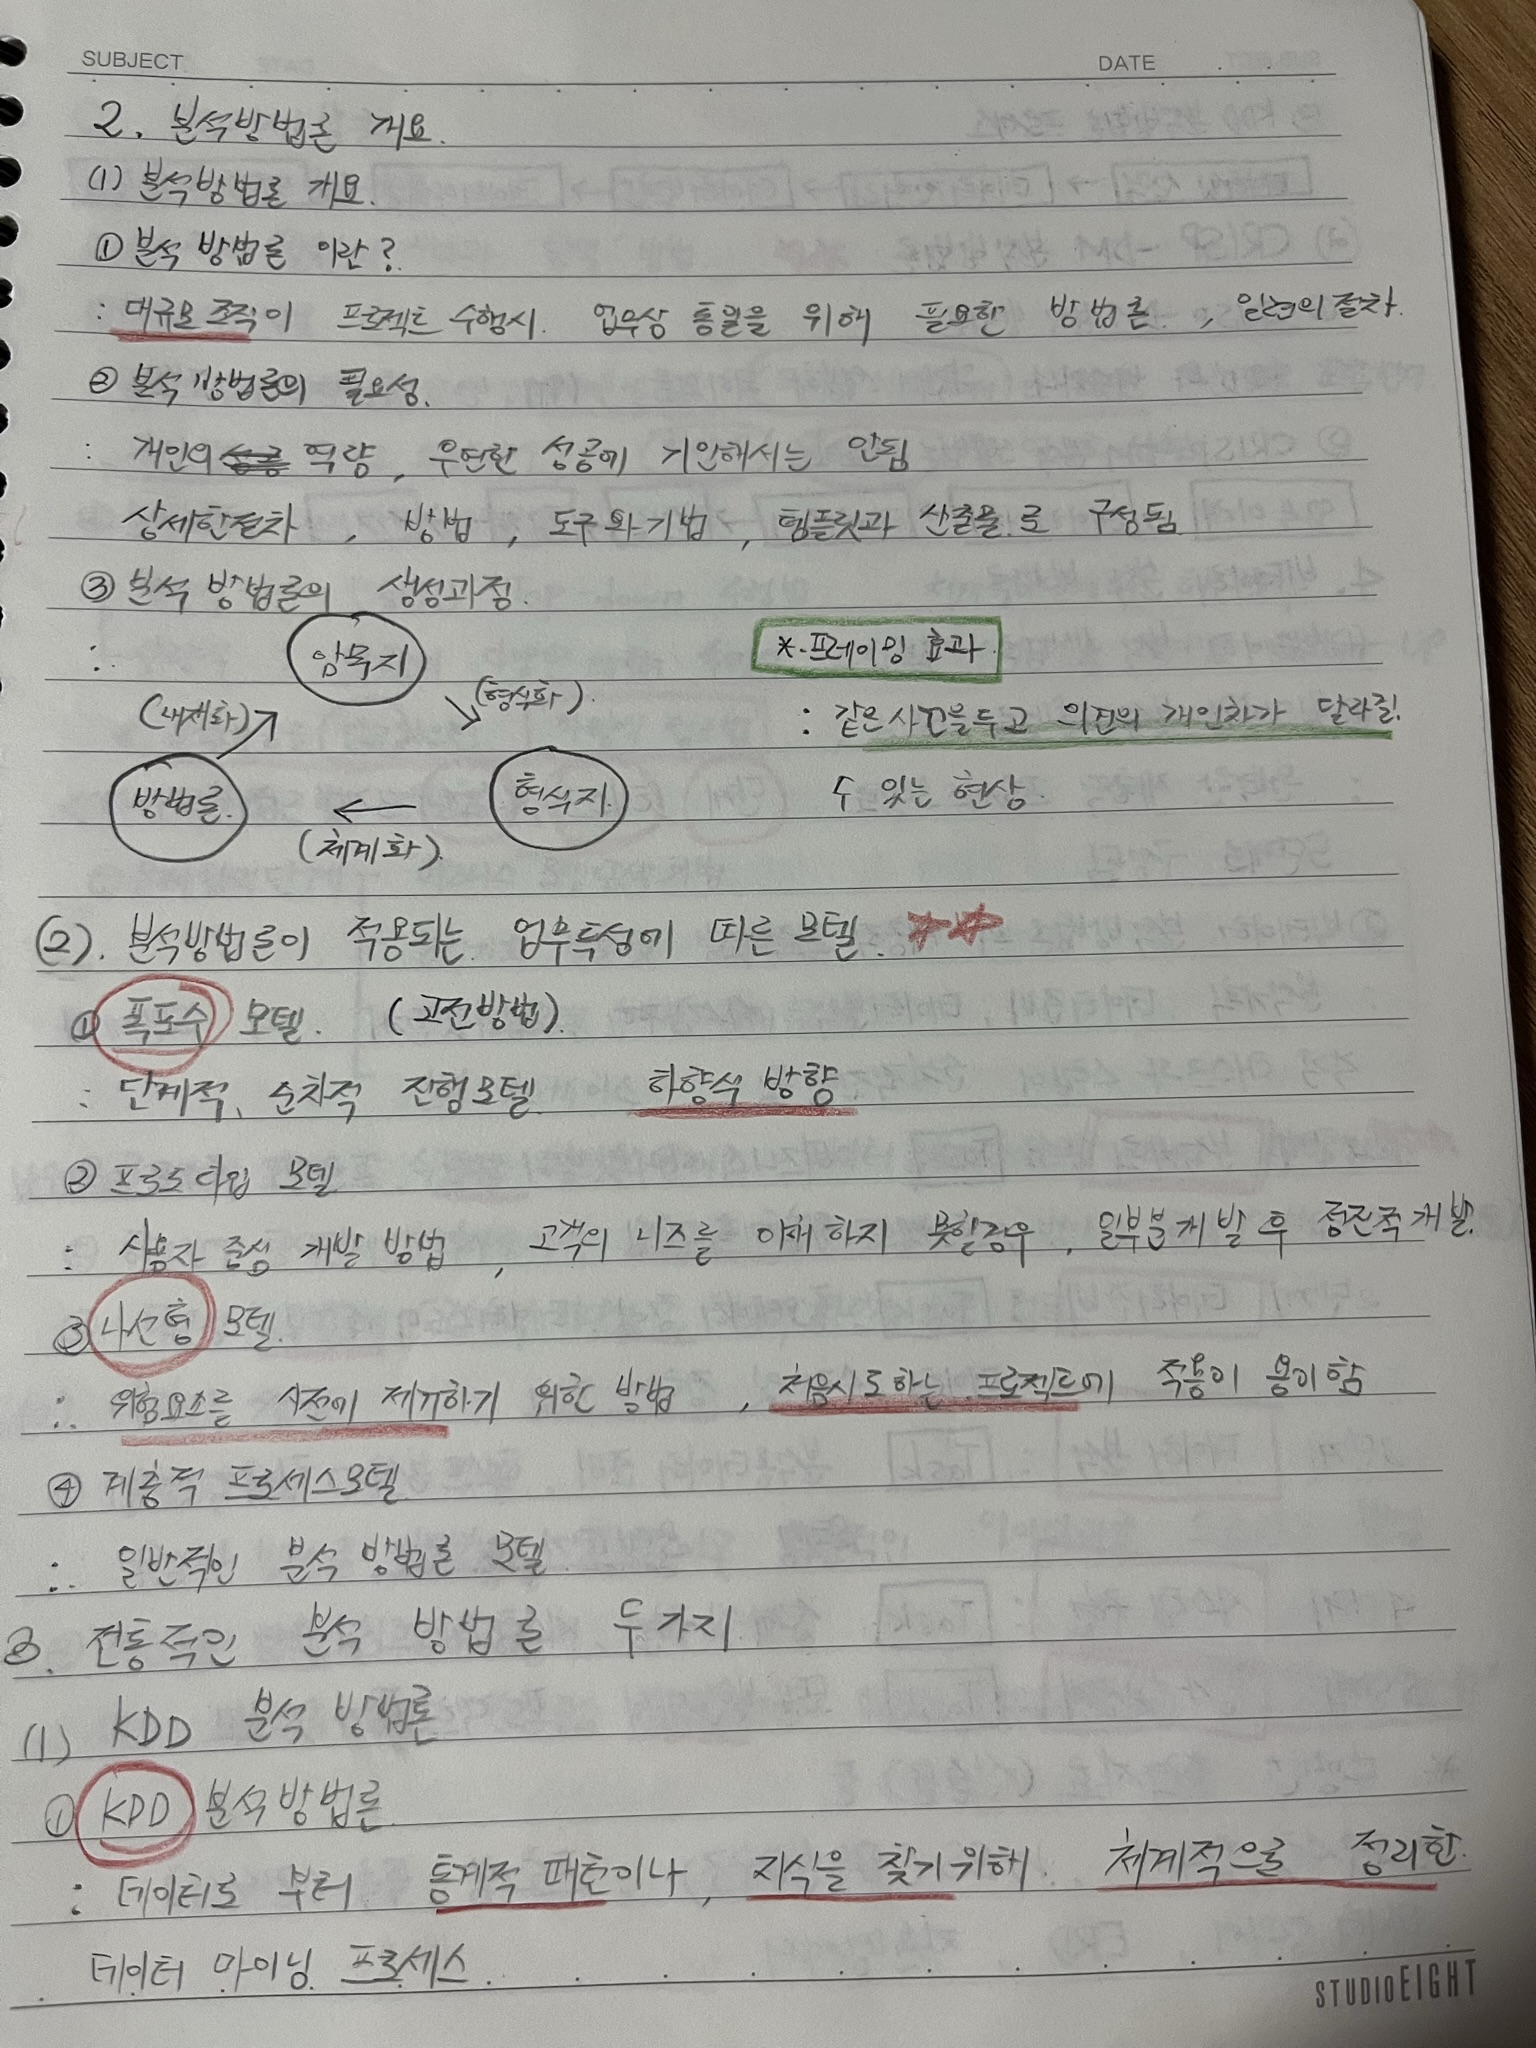 SUBJECT
DATE
2. 분석방법론 개요.
(1) 분석방법론 개요.
① 분석 방법론 이란?
: 대규모 조직이 프로젝트 수행시. 업무상 통일을 위해 필요한 방법론, 일련의 절차.
② 분석 방법론의 필요성.
: 개인의 역량, 우연한 성공에 기인해서는 안됨
상세한절차, 방법, 도구와 기법, 템플릿과 산출물로 구성됨
③ 분석 방법론의 생성과정.
: 암묵지
*.프레이밍 효과.
(내재화)
(형식화).
: 같은사건을두고 의견의 개인차가 달라질.
방법론.
형식지.
수 있는 현상.
(체계화).
(2). 분석방법론이 적용되는 업무특성에 따른 모델.
① 폭포수 모델. (고전방법).
: 단계적, 순차적 진행모델. 하향식 방향
② 프로토타입 모델
: 사용자 중심 개발 방법, 고객의 니즈를 이해하지 못할경우, 일부분개발 후 점진적 개발.
③ 나선형 모델.
: 위험요소를 사전에 제거하기 위한 방법, 처음시도하는 프로젝트에 적용이 용이함
④ 계층적 프로세스모델
: 일반적인 분석 방법론 모델
3. 전통적인 분석 방법론 두가지
(1) KDD 분석 방법론
① KDD 분석방법론
: 데이터로 부터 통계적 패턴이나, 지식을 찾기위해. 체계적으로 정리한.
데이터 마이닝 프로세스.
STUDIOEIGHT